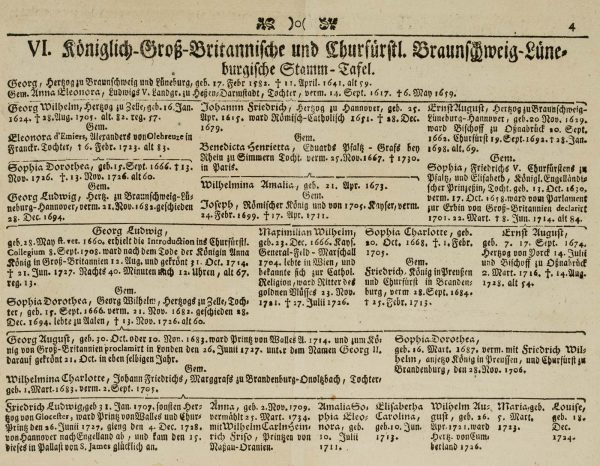 )o(
4
VI. Königlich-Groß-Britannische und Churfürstl. Braunschweig-Lüne-
burgische Stamm-Tafel.
Georg, Hertzog zu Braunschweig und Lüneburg, geb. 17. Febr 1582. † 11. April. 1641. alt. 59.
Gem. Anna Eleonora, Ludwigs V. Landgr. zu Heßen/Darmstadt, Tochter, verm. 14. Sept. 1617. † 6. May 1659.
Georg Wilhelm, Hertzog zu Zelle, geb. 16. Jan.
1624. † 28. Aug. 1705. alt. 82. reg. 57.
Gem.
Eleonora d'Emiers, Alexanders von Olebreuze in
Franckr. Tochter, † 6. Febr. 1723. alt 83.
Sophia Dorothea, geb. 15. Sept. 1666. † 13.
Nov. 1726. † 13. Nov. 1726. alt 60.
Gem.
Georg Ludwig, Hertz. zu Braunschweig-Lü-
neburg-Hannover, verm. 21. Nov. 1682. geschieden
28. Dec. 1694.
Johann Friedrich, Hertzog zu Hannover, geb. 25.
Apr. 1615. ward Römisch-Catholisch 1651. † 28. Dec.
1679.
Gem.
Benedicta Henrietta, Eduards Pfaltz-Grafs bey
Rhein zu Simmern Tocht. verm. 25. Nov. 1667. † 1730.
in Paris.
Wilhelmina Amalia, geb. 21. Apr. 1673.
Gem.
Joseph, Römischer König und von 1705. Kayser, verm.
24. Febr. 1699. † 17. Apr. 1711.
Ernst August, Hertzog zu Braunschweig-
Lüneburg-Hannover, geb. 20. Nov. 1629.
ward Bischoff zu Oßnabrück 20. Sept.
1662. Churfürst 19. Sept. 1692. † 28. Jan.
1698. alt. 69.
Gem.
Sophia, Friedrichs V. Churfürstens zu
Pfaltz, und Elisabeth, Königl. Engelländi-
scher Printzeßin, Tocht. geb. 13. Oct. 1630.
verm. 17. Oct. 1658. ward vom Parlament
zur Erbin von Groß-Britannien declarirt
1701. 22. Mart. † 8. Jun. 1714. alt 84.
Georg Ludwig,
geb. 28. May st. vet. 1660. erhielt die Introduction ins Churfürstl.
Collegium 8. Sept. 1708. ward nach dem Tode der Königin Anna
König in Groß-Britannien 12. Aug. und gekrönt 31. Oct. 1714.
† 21. Jun. 1727. Nachts 40. Minuten nach 12. Uhren, alt 67.
reg. 13.
Gem.
Sophia Dorothea, Georg Wilhelm, Hertzogs zu Zelle, Toch-
ter, geb. 15. Sept. 1666. verm. 21. Nov. 1682. geschieden 28.
Dec. 1694. lebte zu Aalen, † 13. Nov. 1726. alt 60.
Maximilian Wilhelm,
geb. 23. Dec. 1666. Kays.
General-Feld-Marschall
1704. lebte in Wien, und
bekannte sich zur Cathol.
Religion, ward Ritter des
goldnen Vlüsses 23. Nov.
1721. † 27. Julii 1726.
Sophia Charlotte, geb.
20. Oct. 1668, † 1. Febr.
1705.
Gem.
Friedrich. König in Preußen
und Churfürst in Branden-
burg, verm. 28. Sept. 1684.
† 25. Febr. 1713.
Ernst August,
geb. 7. 17. Sept. 1674.
Hertzog von Yorck 14. Julii
und Bischoff zu Oßnabrück
2. Mart. 1716. † 14. Aug.
1728. alt 54.
Georg August, geb. 30. Oct. oder 10. Nov. 1683. ward Printz von Walles A. 1714. und zum Kö-
nig von Groß-Britannien proclamirt in Londen den 26. Junii 1727. unter dem Namen Georg II.
darauf gekrönt 21. Oct. in eben selbigen Jahr.
Gem.
Wilhelmina Charlotte, Johann Friedrichs, Marggrafs zu Brandenburg-Onoltzbach, Tochter
geb. 1. Mart. 1683. verm. 2. Sept. 1705.
Sophia Dorothea,
geb. 16. Mart. 1687. verm. mit Friedrich Wil-
helm, anjetzo König in Preussen, und Churfürst zu
Brandenburg, den 28. Nov. 1706.
Friedrich Ludwig, geb 31. Jan. 1707. sonsten Her-
tzog von Glocester, ward Printz von Walles und Chur-
Printz den 26. Junii 1727. gieng den 4. Dec. 1728.
von Hannover nach Engelland ab, und kam den 15.
dieses in Pallast von S. James glücklich an.
Anna, geb. 2. Nov. 1709.
vermählt 25. Mart. 1734.
mit Wilhelm Carln Hein-
rich Friso, Printzen von
Naßau-Oranien.
Amalia So-
phia Eleo-
nora, geb.
10. Julii
1711.
Elisabetha
Carolina,
geb. 10. Jun.
1713.
Wilhelm Au-
gust, geb. 26.
Apr. 1721. ward
Hertz. von Cum-
berland 1726.
Maria geb.
5. Mart.
1723.
Louise,
geb. 18.
Dec.
1724.